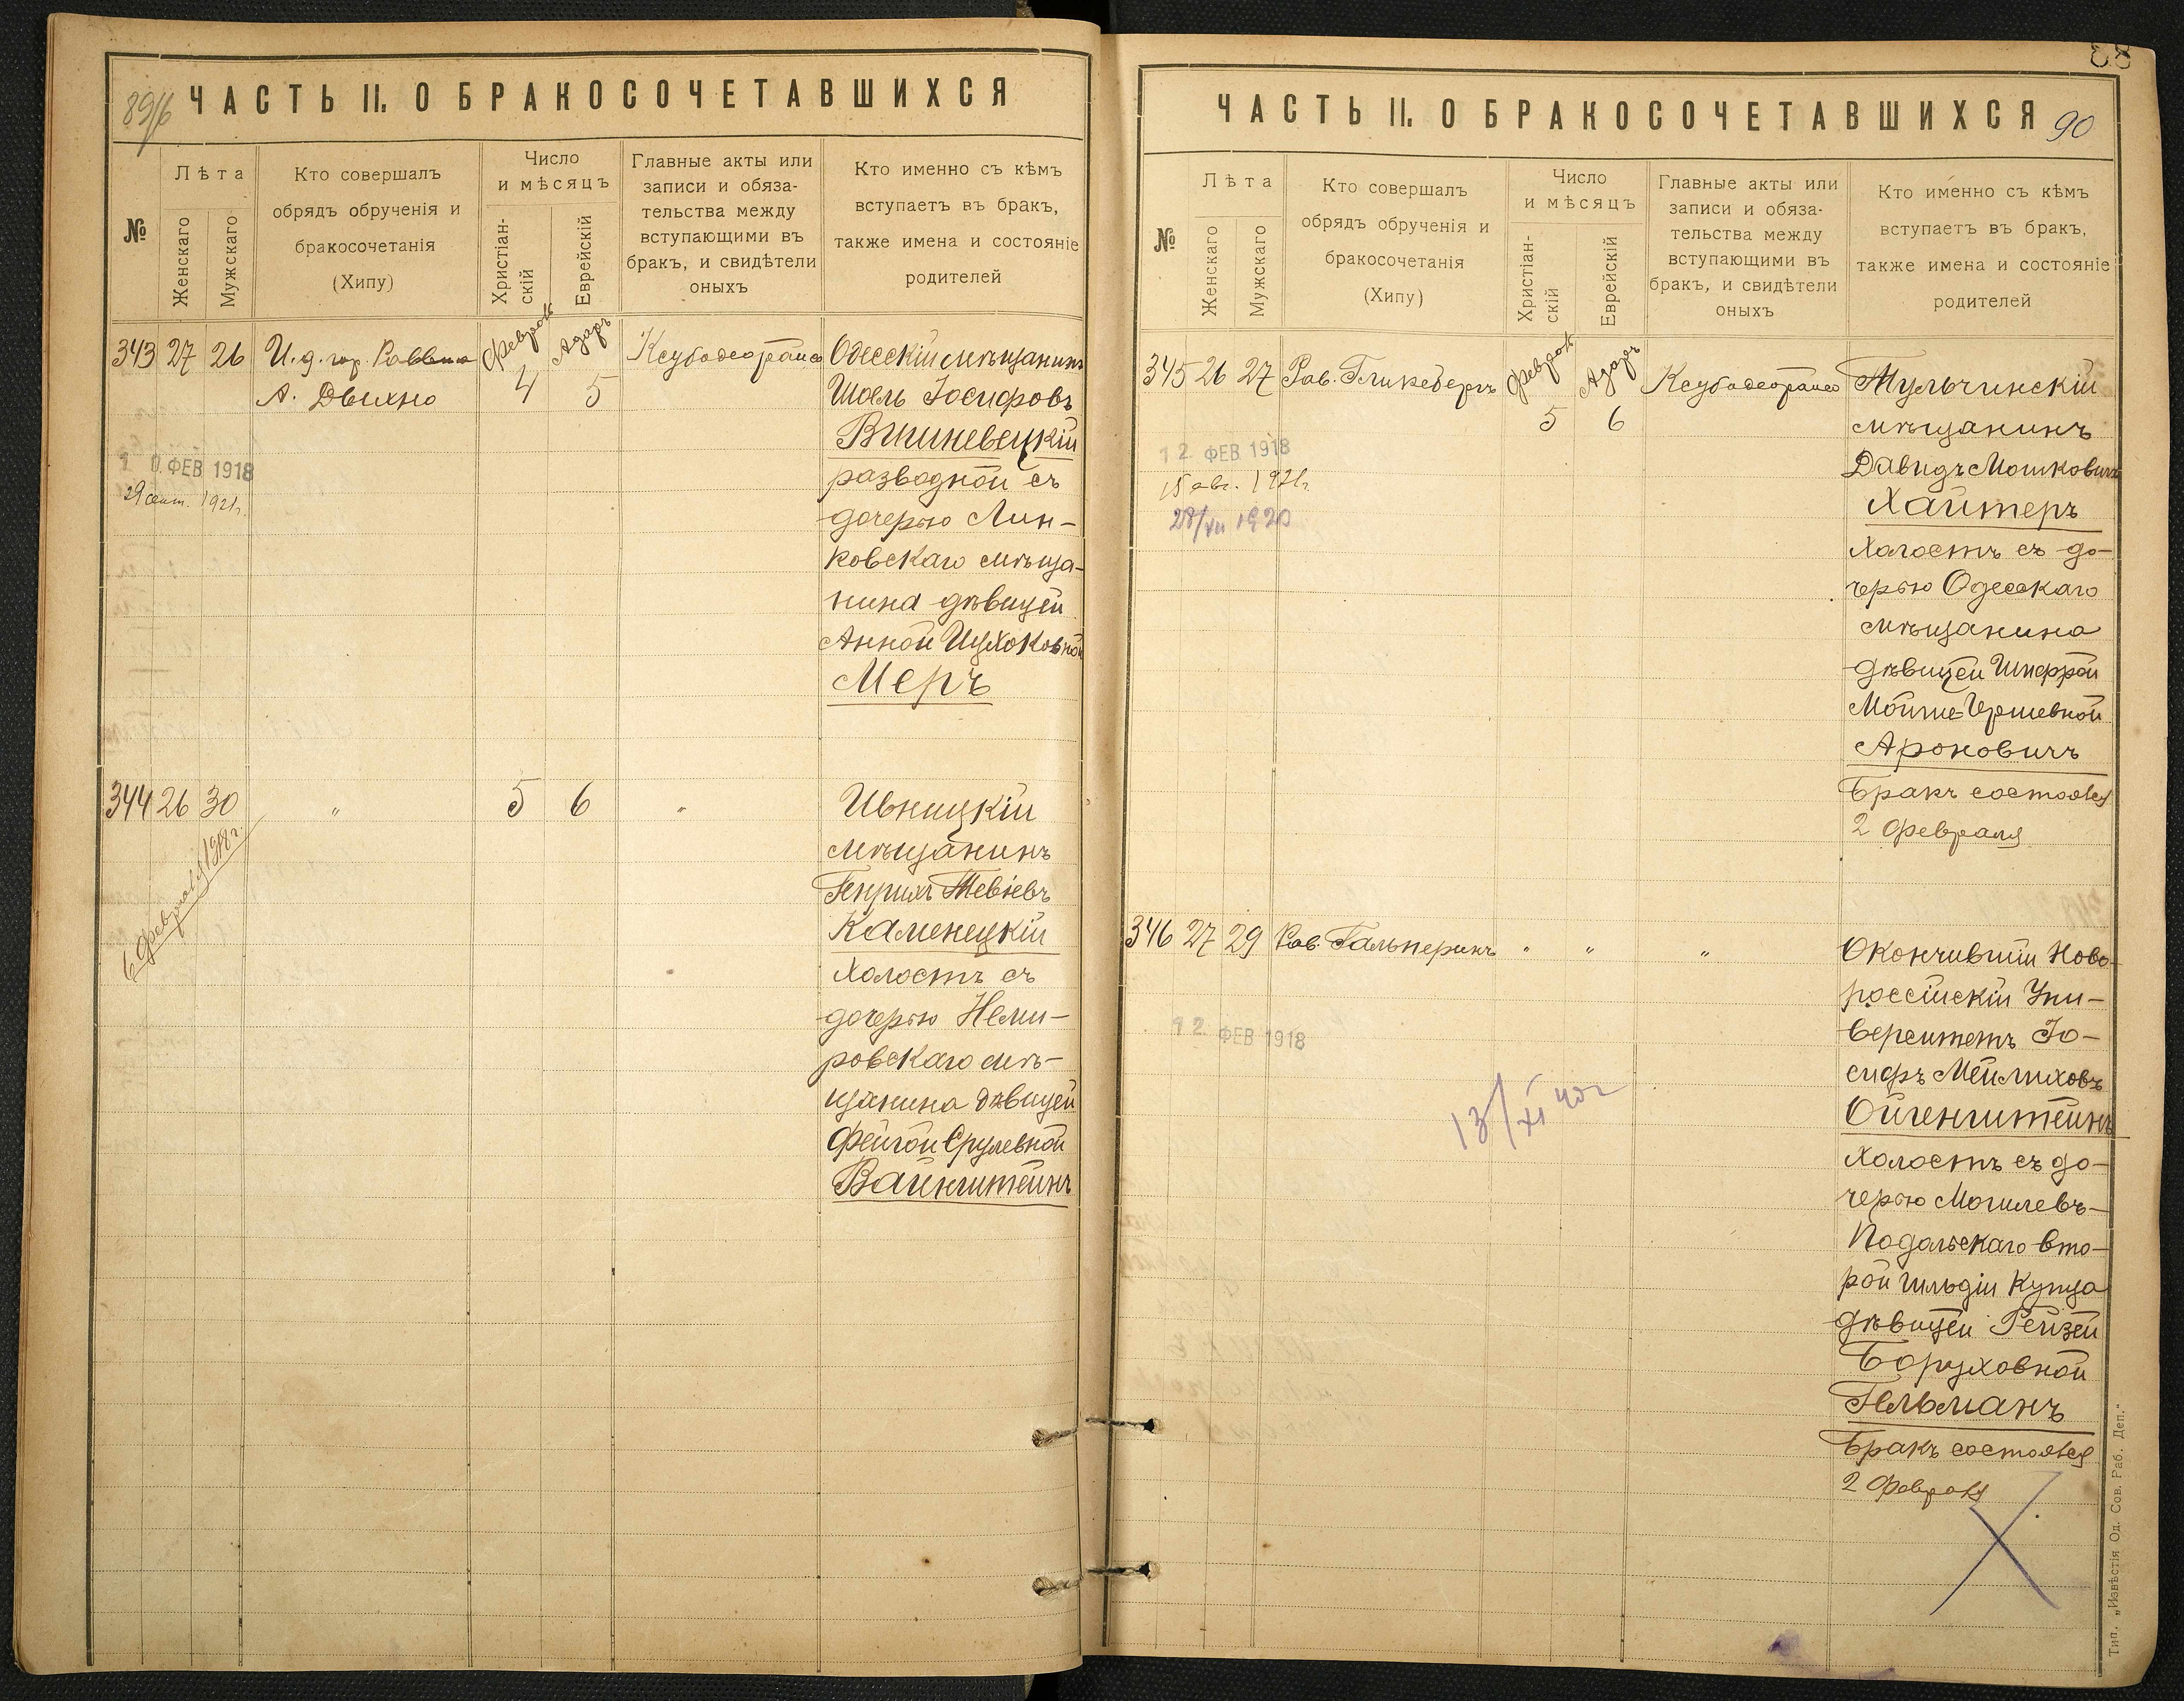 89/б
ЧАСТЬ II. О БРАКОСОЧЕТАВШИХСЯ
№
Лѣта
Женскаго
Мужскаго
Кто совершалъ
обрядъ обрученія и
бракосочетанія
(Хипу)
Число
и мѣсяцъ
Христіан-
скій
Еврейскій
Главные акты или
записи и обяза-
тельства между
вступающими въ
бракъ, и свидѣтели
оныхъ
Кто именно съ кѣмъ
вступаетъ въ бракъ,
также имена и состояніе
родителей
343 27 26 И. д. гор. Раввина Февраль Адаръ Одесскій мѣщанинъ
А. Двихно 4 5 Шоель Іосифовъ
Вишневецкій
разводной съ
10 ФЕВ 1918
29 сент. 1921г.
дочерью Лин-
ковскаго мѣща-
нина дѣвицей
Анной Ицхоковной
Меръ
344 26 30 " 5 6 " Ивницкій
мѣщанинъ
6 февраля 1918 г.
Генрихъ Тевіевъ
Каменецкій
холостъ съ
дочерью Неми-
ровскаго мѣ-
щанина дѣвицей
Фейгой Срулевной
Вайнштейнъ
ЧАСТЬ II. О БРАКОСОЧЕТАВШИХСЯ
90
№
Лѣта
Женскаго
Мужскаго
Кто совершалъ
обрядъ обрученія и
бракосочетанія
(Хипу)
Число
и мѣсяцъ
Христіан-
скій
Еврейскій
Главные акты или
записи и обяза-
тельства между
вступающими въ
бракъ, и свидѣтели
оныхъ
Кто именно съ кѣмъ
вступаетъ въ бракъ,
также имена и состояніе
родителей
345 26 27 Рав. Гликсбергъ Февраль Адаръ Тульчинскій
5 6 мѣщанинъ
12 ФЕВ 1918
15 авг. 1921г.
28/XII 1920
Давидъ Мошковичъ
Хайтеръ
холостъ съ до-
черью Одесскаго
мѣщанина
дѣвицей Шифрой
Мойше-Гершевной
Ароновичъ
Бракъ состоялся
2 Февраля
346 27 29 Рав. Гальперинъ " " " Окончившій Ново-
россійскій Уни-
12 ФЕВ 1918
верситетъ Іо-
сифъ Мейлиховъ
13/XI 40г
Ойгенштейнъ
холостъ съ до-
черью Могилевъ-
Подольскаго вто-
рой гильдіи Купца
дѣвицей Рейзей
Боруховной
Гельманъ
Бракъ состоялся
2 Февраля
Тип. „Извѣстія Од. Сов. Раб. Деп."